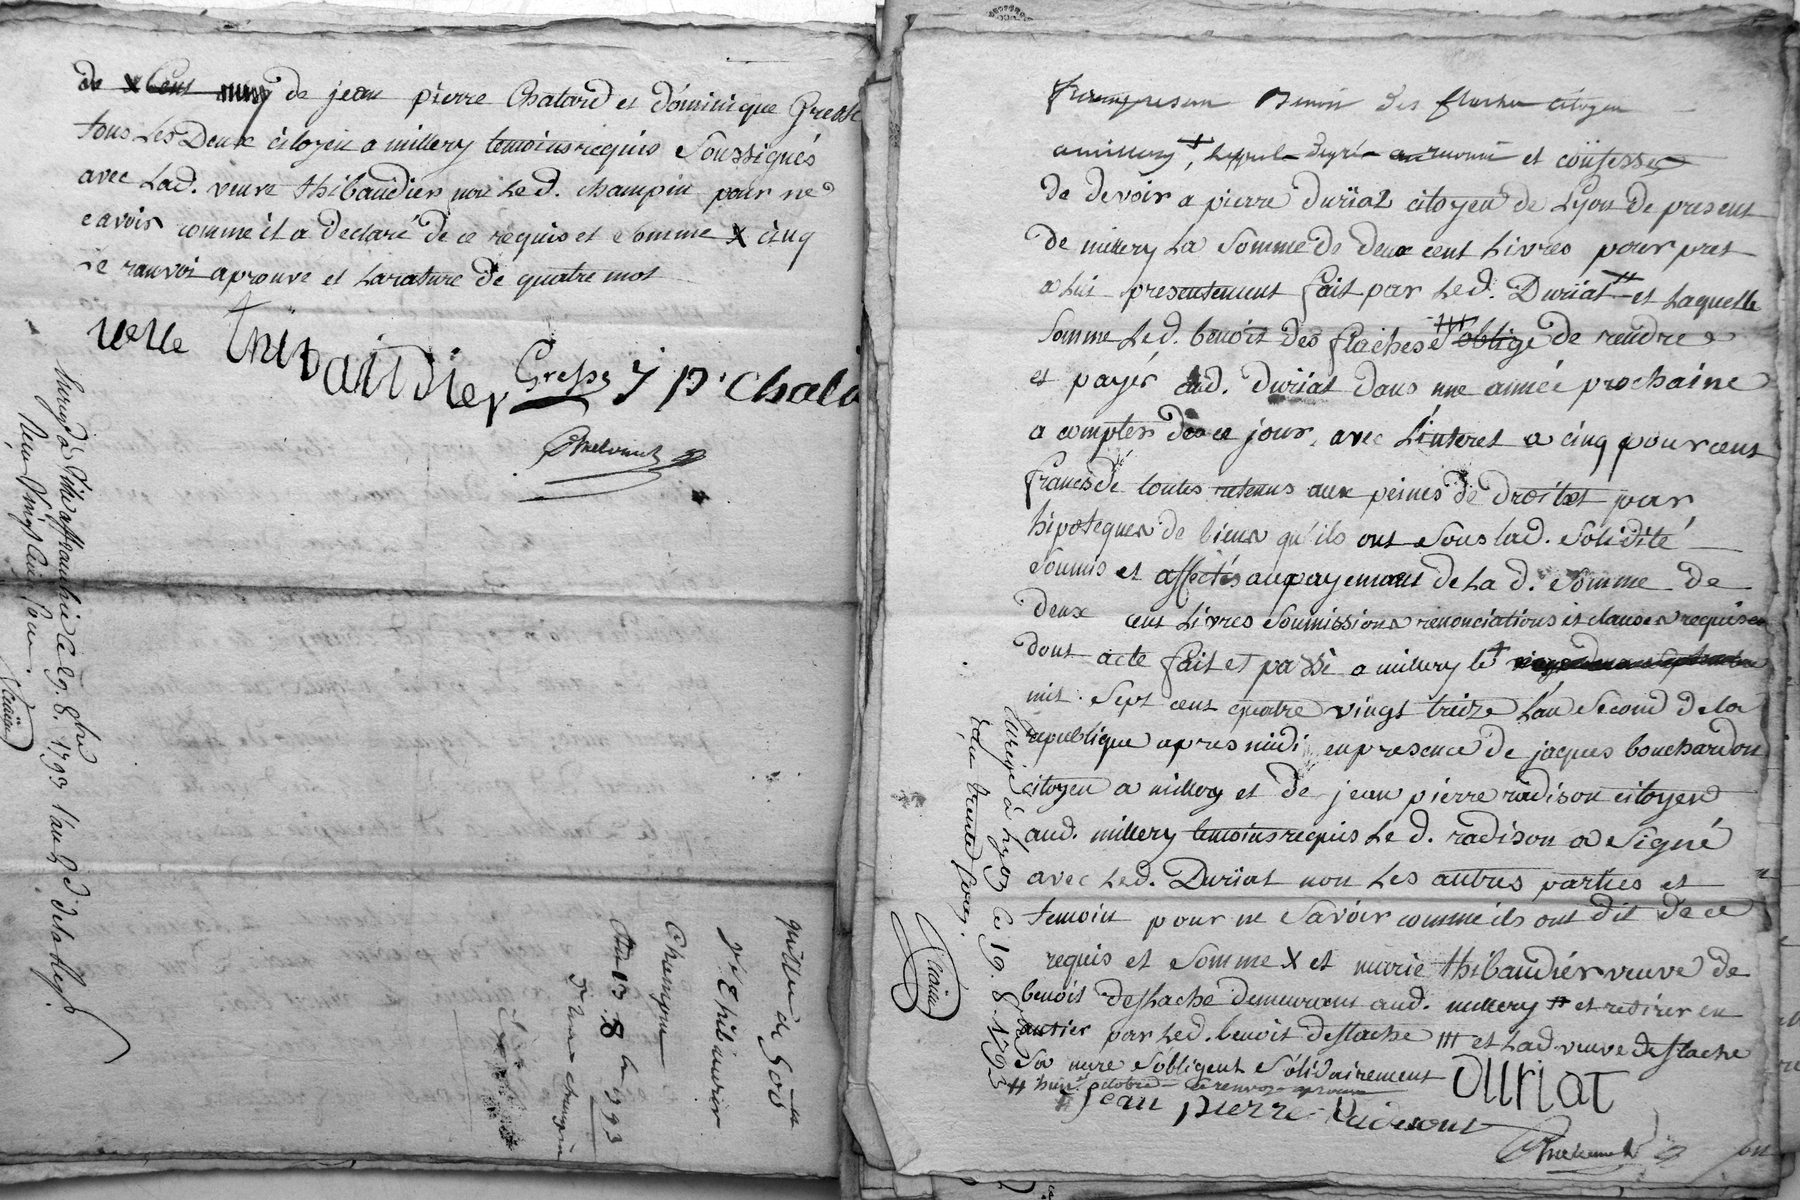 de jean pierre Chatard et dominique
tous les Deux citoyen a millery temoins requis Soussignés
avec Lad. veuve thibaudier non Led. champin pour ne
savoir comme il a declaré de ce requis et somme X cinq
le ranvoi aprouvé et la rature de quatre mot
thibaudier
J P. Chata
Enreg. à Ville affranchie ce 19. 8.bre 1793 l'an 2.d de la Rep.
Reçu Vingt
quittu de 500
V.e Thibaudier
8 1793
Benoit des flaches citoyen
a millery et confesse
de devoir a pierre duriat citoyen de Lyon de present
de millery La Somme de deux cent Livres pour pret
a Lui presentement fait par Led. Duriat # et Laquelle
Somme Led. benoit des flaches s'oblige de rendre
et payer aud. duriat dans une année prochaine
a compter de ce jour, avec L'interet a cinq pour cent
francs de toutes retenus aux peines de droit et par
hipoteques de biens qu'ils ont sous lad. solidité
soumis et affectés au payement de La d. somme de
deux cent Livres soumissions renonciations et clauses requises
dont acte fait et passé a millery le
mil sept cent quatre vingt treize L'an Second de la
republique apres midi en presence de jaques bouchardon
citoyen a millery et de jean pierre radison citoyen
aud. millery temoins requis Le d. radison a signé
avec Led. Duriat non Les autres parties et
temoin pour ne savoir comme ils ont dit de ce
requis et somme X et marie thibaudier veuve de
benoit deflache demeurant aud. millery # et retirer en
par Led. benoit deflache ## et Lad veuve deflache
sa mere s'obligent Solidairement
octobre
duriat
jean pierre
à Lyon ce 19. 8.bre 1793
reçu trente sous